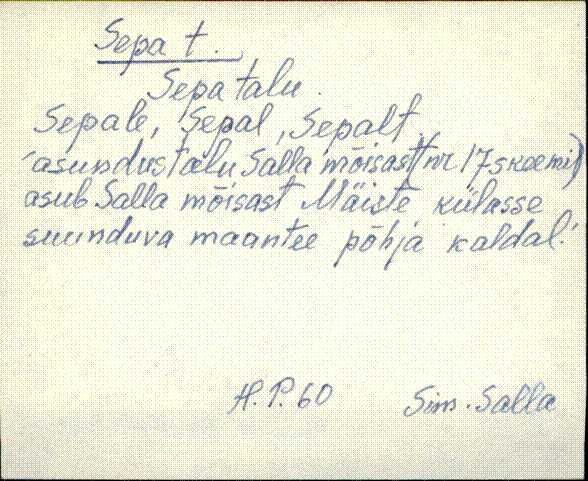 Sepa t.
Sepa talu.
Sepale, Sepal, Sepalt.
"asundustalu Salla mõisast (nr 17 skeemil)
asub Salla mõisast Mäiste külasse
suunduva maantee põhja kaldal."
H. P. 60 Sim. Salla